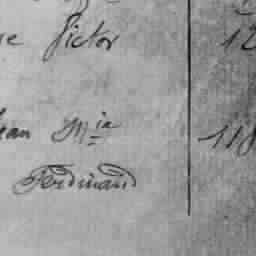 Victor 12
Jean Mie 118
Ferdinand